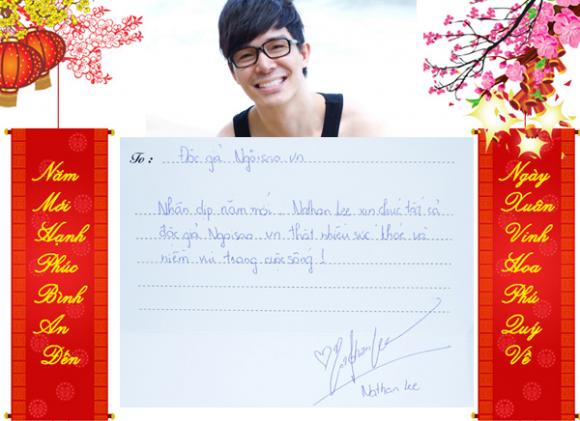 Năm
Mới
Hạnh
Phúc
Bình
An
Đến
To : Độc giả Ngôisao vn
Nhân dịp năm mới Nathan Lee xin chúc tất cả
độc giả Ngoisao vn thật nhiều sức khỏe và
niềm vui trong cuộc sống !
Nathan Lee
Nathan Lee
Ngày
Xuân
Vinh
Hoa
Phú
Quý
Về